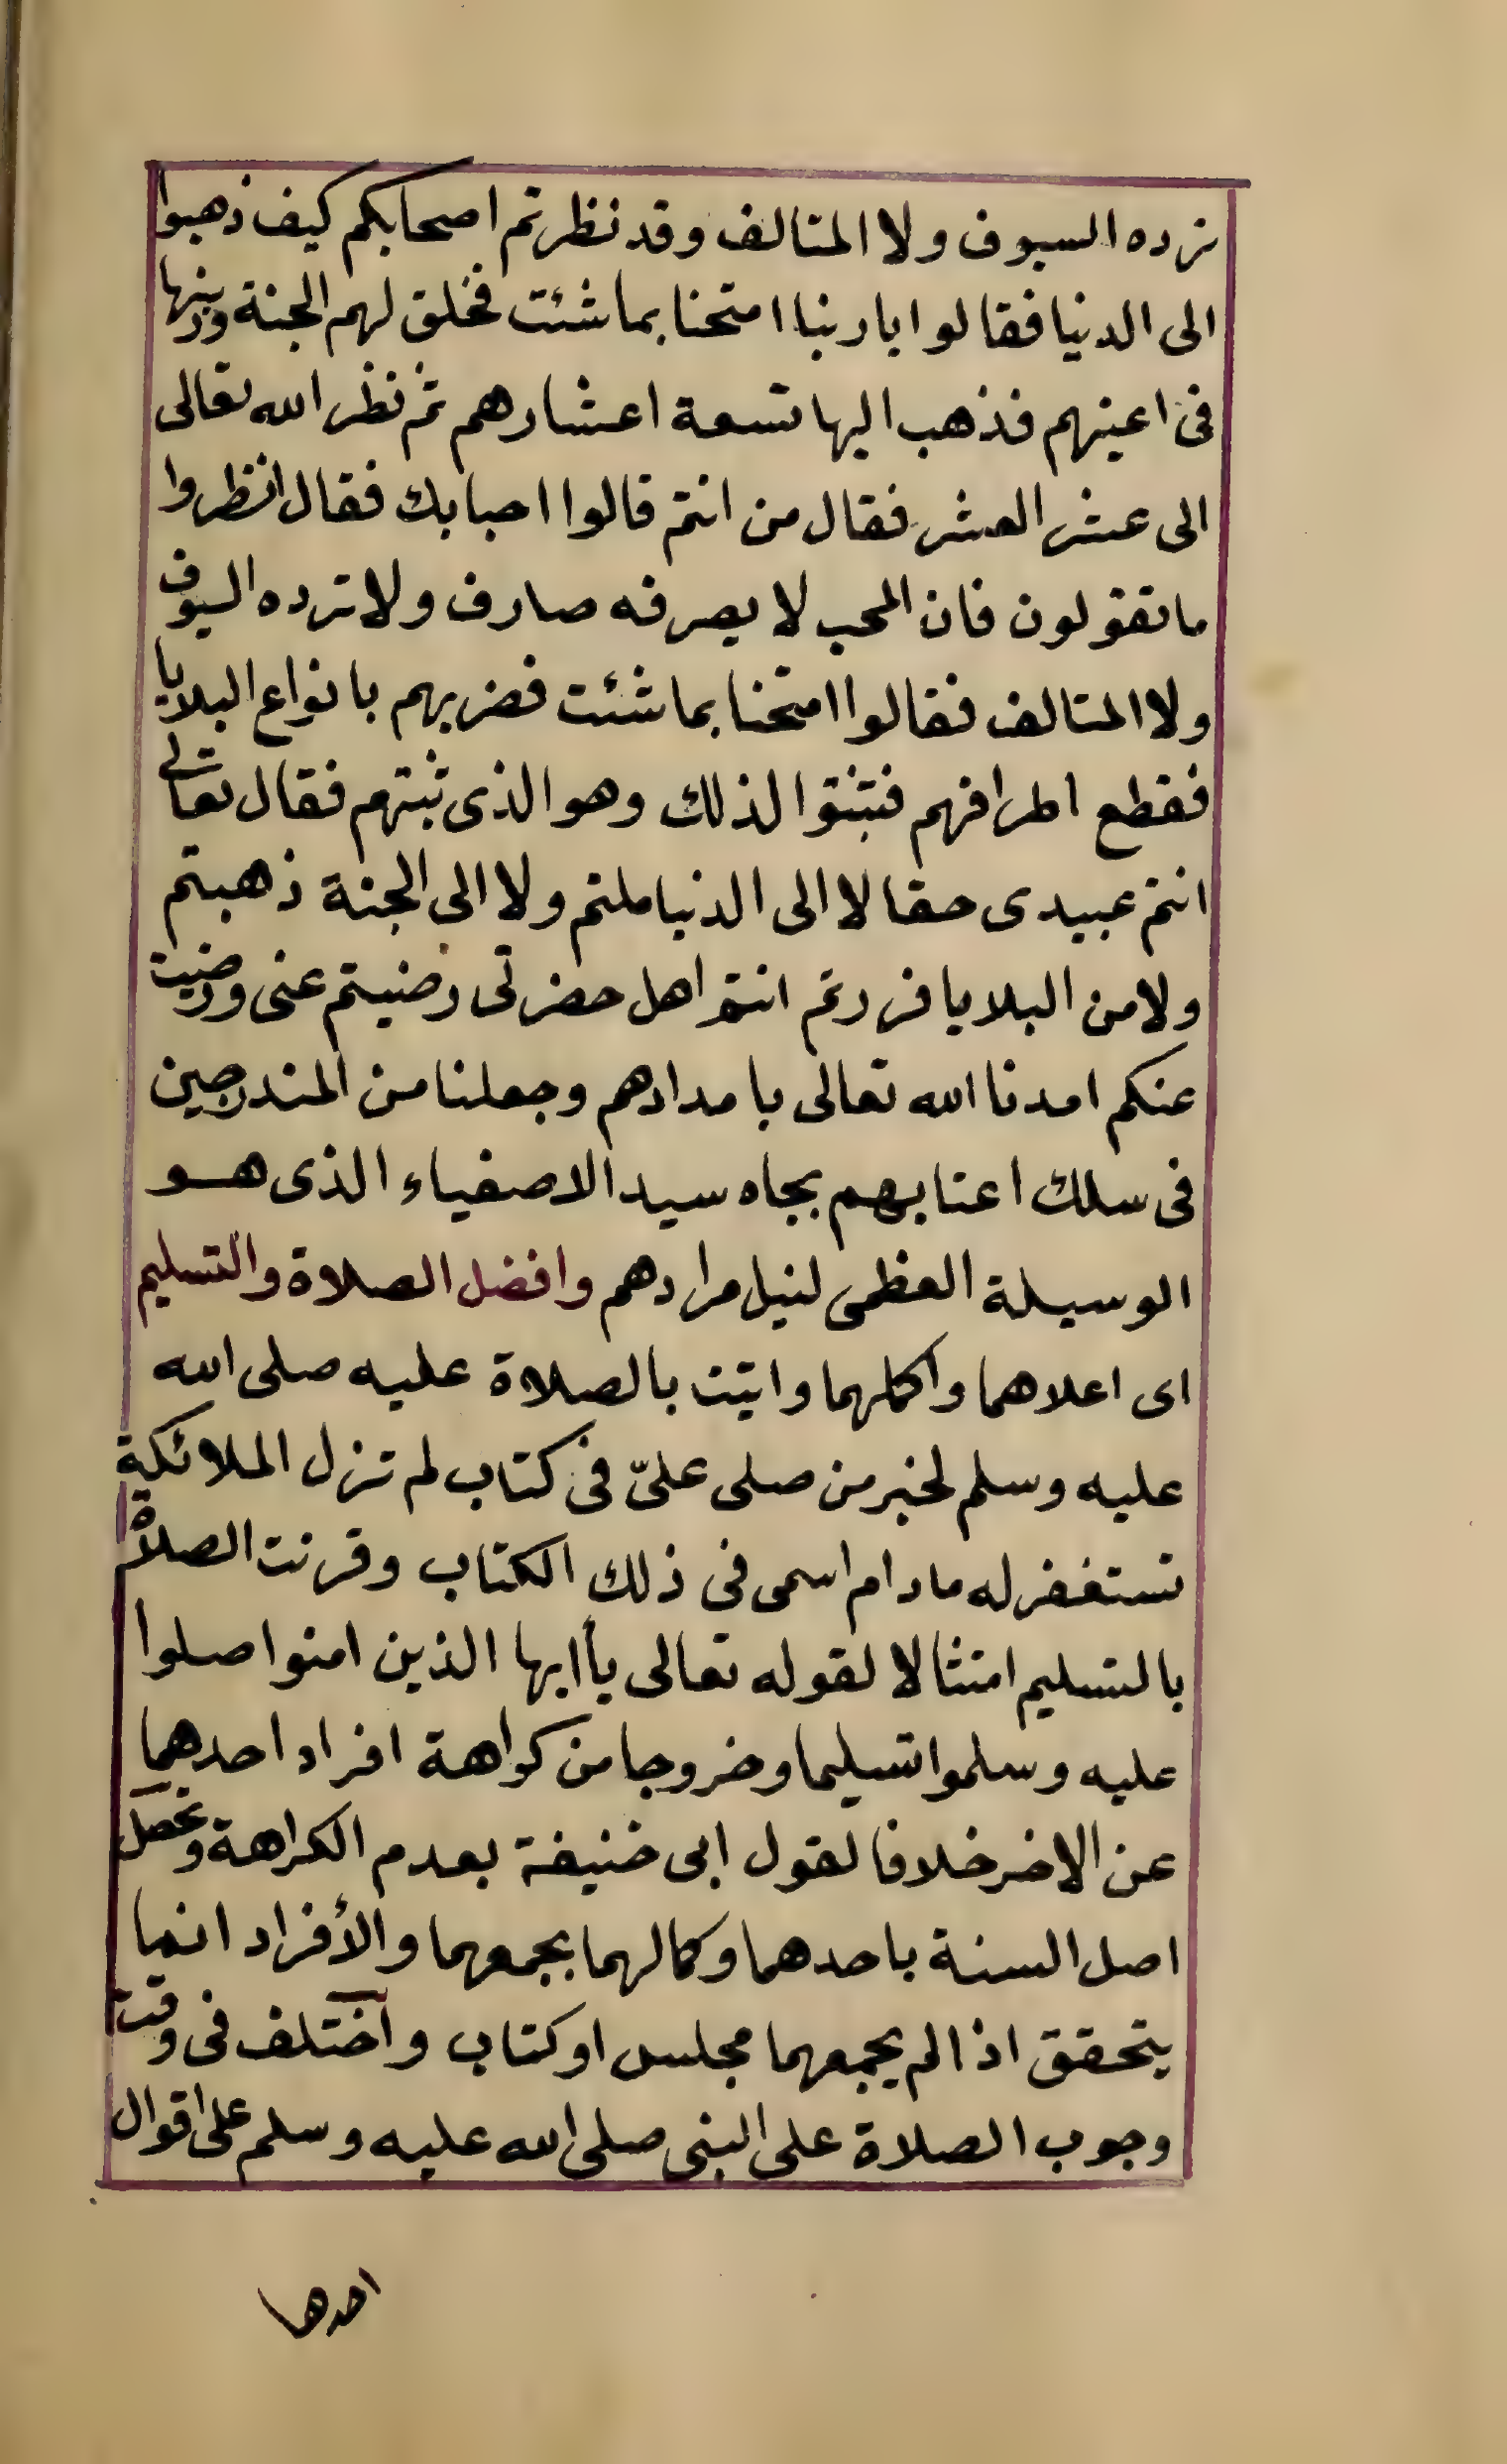 ترده السيوف ولا المتالف وقد نظرتم اصحابكم كيف ذهبوا
الى الدنيا فقالوا يا ربنا امتحنا بما شئت فخلق لهم الجنة وزينها
فى اعينهم فذهب اليها تسعة اعشارهم ثم نظر الله تعالى
الى عشر العشر فقال من انتم قالوا احبابك فقال انظروا
ما تقولون فان المحب لا يصرفه صارف ولا ترده السيوف
ولا المتالف فقالوا امتحنا بما شئت فضربهم بانواع البلايا
فقطع اطرافهم فثبتوا لذلك وهو الذى ثبتهم فقال تعالى
انتم عبيدى حقا لا الى الدنيا ملتم ولا الى الجنة ذهبتم
ولا من البلايا فررتم انتم اهل حضرتى رضيتم عنى ورضيت
عنكم امدنا الله تعالى بامدادهم وجعلنا من المندرجين
فى سلك اعتابهم بجاه سيد الاصفياء الذى هو
الوسيلة العظمى لنيل مرادهم وافضل الصلاة والتسليم
اى اعلاهما واكملهما واتيت بالصلاة عليه صلى الله
عليه وسلم لخبر من صلى علىّ فى كتاب لم تزل الملائكة
تستغفر له مادام اسمى فى ذلك الكتاب وقرنت الصلاة
بالتسليم امتثالا لقوله تعالى يأايها الذين امنوا صلوا
عليه وسلموا تسليما وخروجا من كراهة افراد احدهما
عن الاخر خلافا لقول ابى حنيفة بعدم الكراهة وتحصل
اصل السنة باحدهما وكمالهما بجمعهما والأفراد انما
يتحقق اذا لم يجمعهما مجلس او كتاب واختلف فى وقت
وجوب الصلاة على النبى صلى الله عليه وسلم على اقوال
احدها